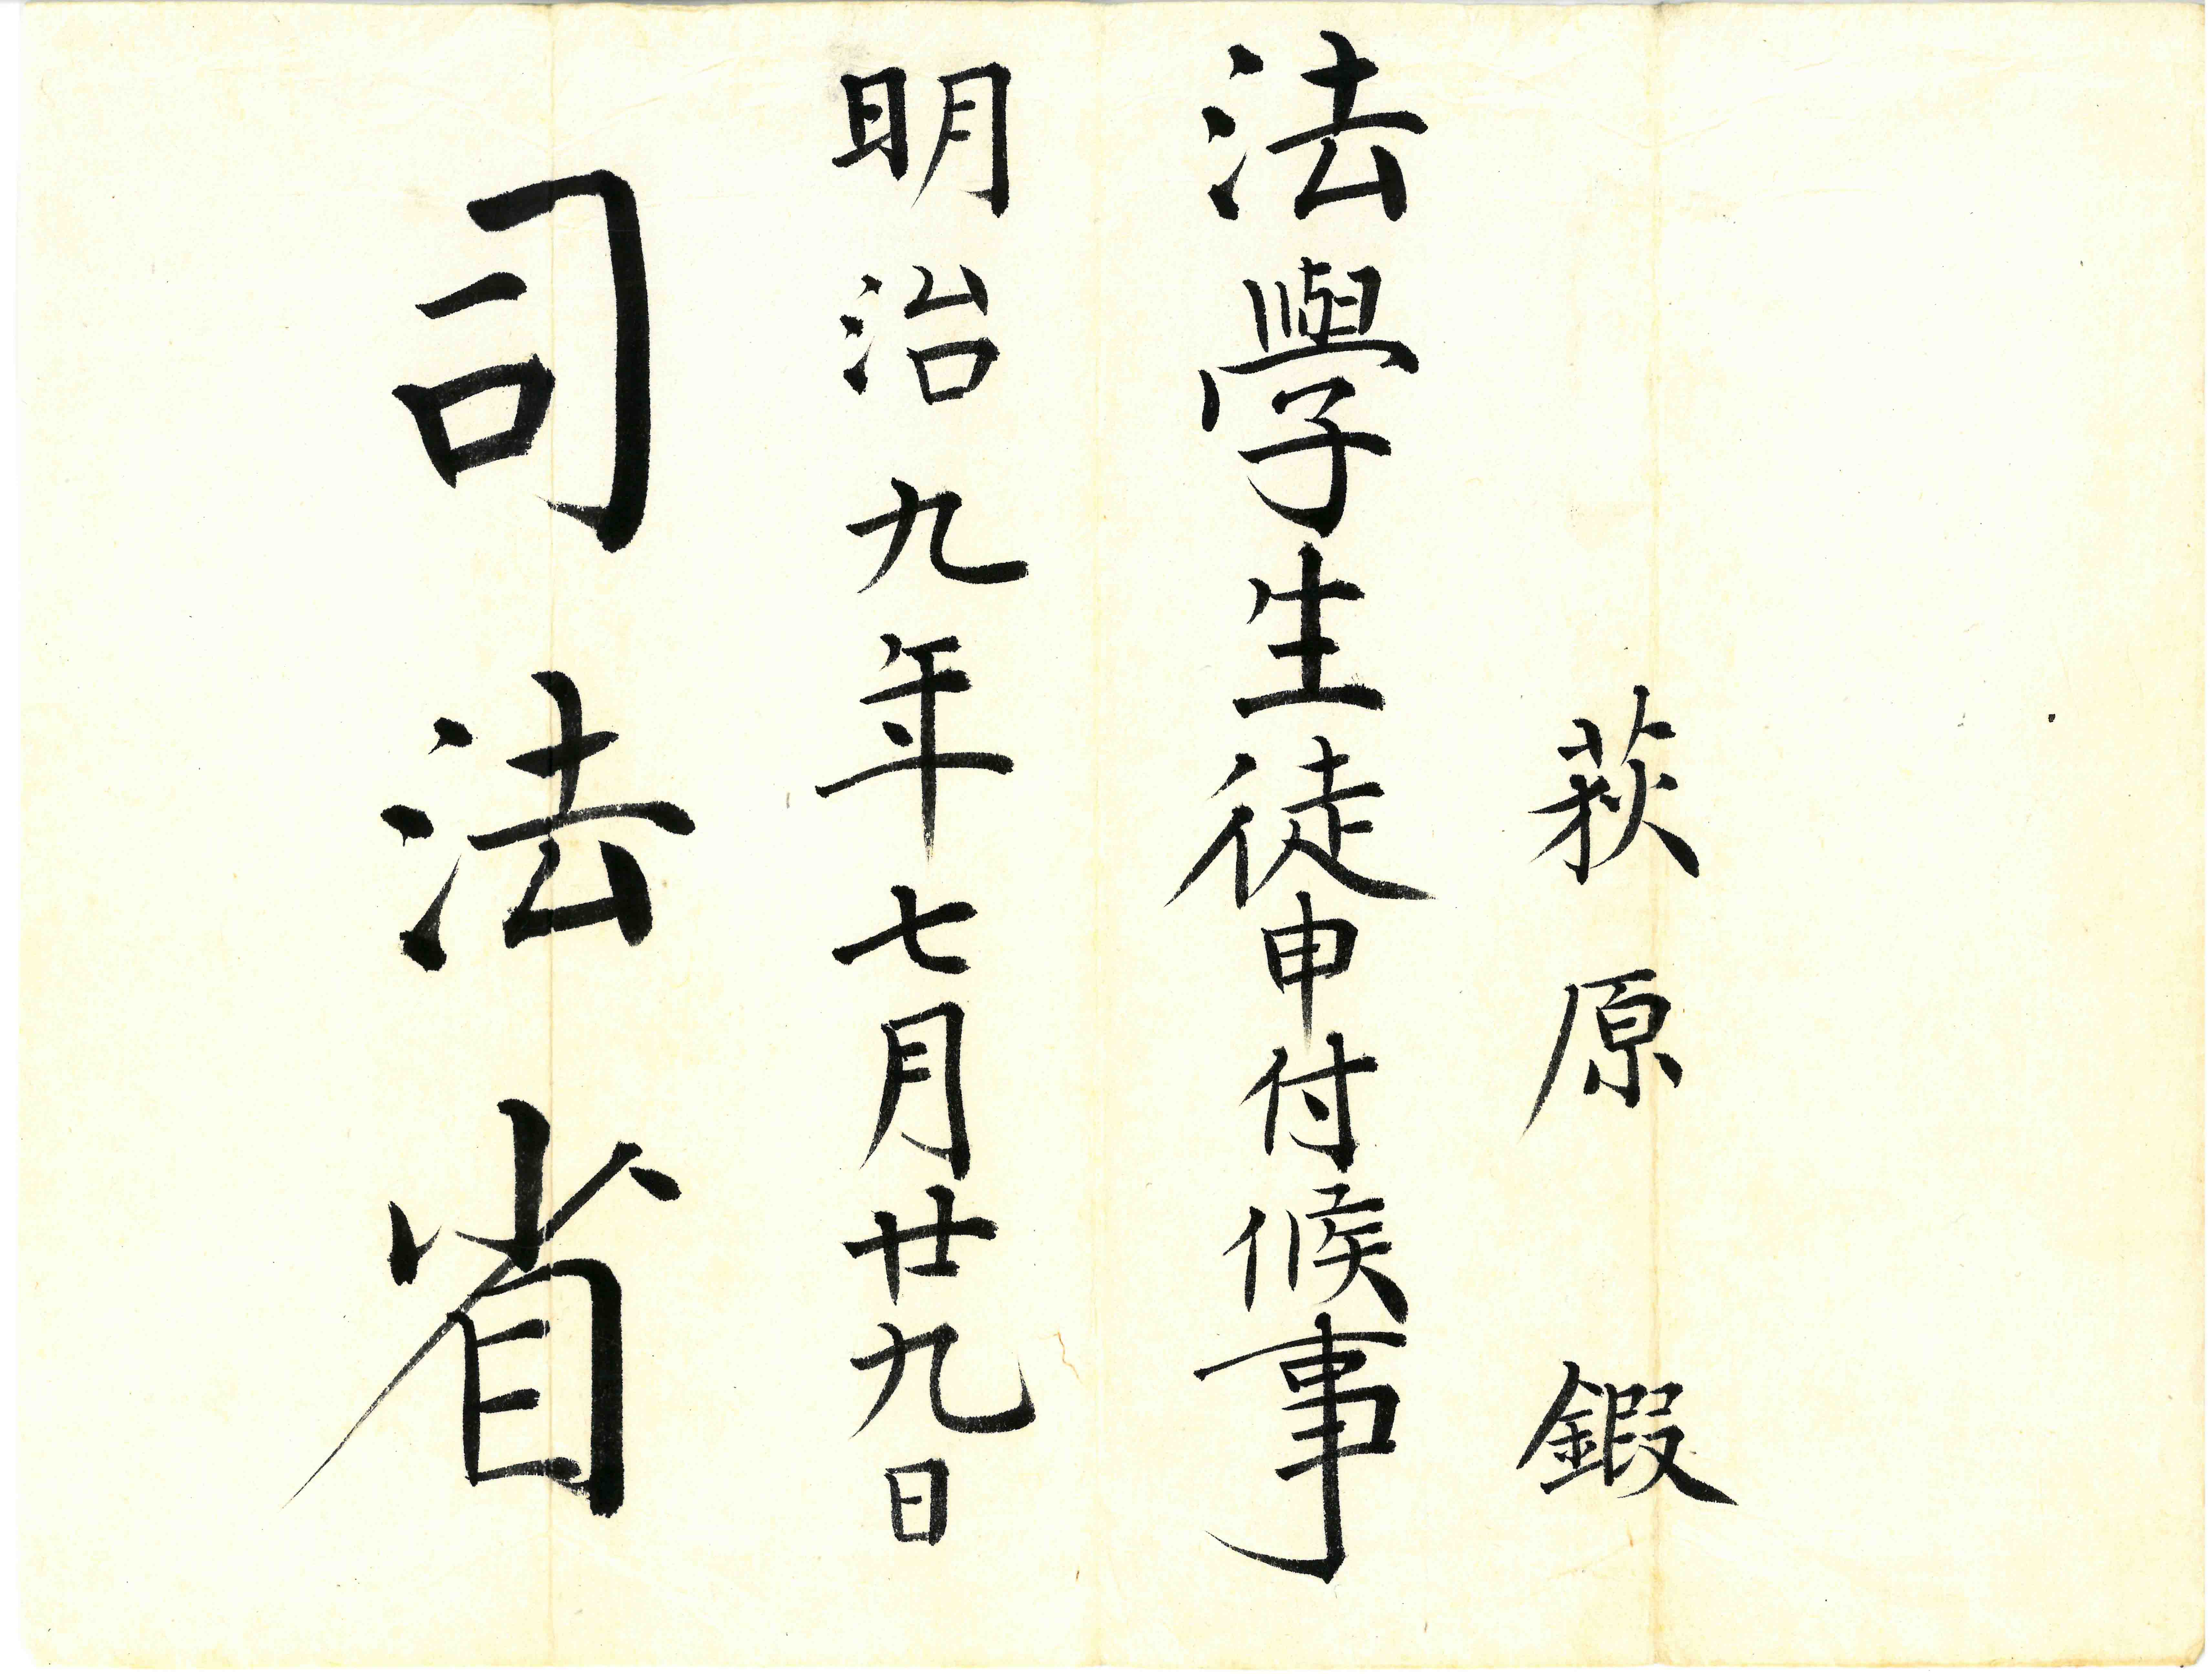 萩原鍜
法學生徒申付候事
明治九年七月廿九日
司法省